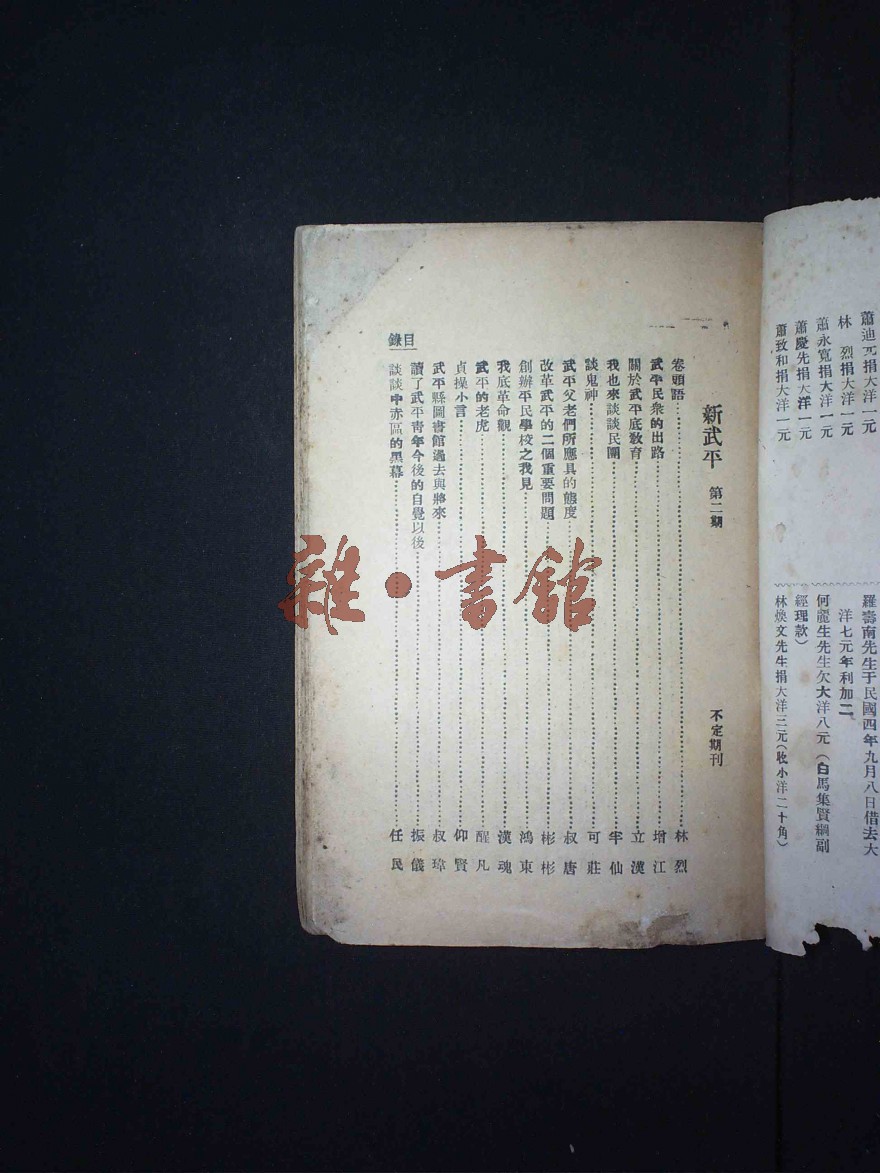 蕭迪元捐大洋一元
林　烈捐大洋一元
蕭永寬捐大洋一元
蕭慶先捐大洋一元
蕭致和捐大洋一元
羅壽南先生于民國四年九月八日借去大
洋七元年利加二
何麗生先生欠大洋八元（白馬集賢綱副
經理款）
林煥文先生捐大洋三元（收小洋二十角）
新武平　第二期　不定期刊
卷頭語……林烈
武平民衆的出路……增江
關於武平底敎育……立漢
我也來談談民團……牢仙
談鬼神……可莊
武平父老們所應具的態度……叔唐
改革武平的二個重要問題……彬彬
創辦平民學校之我見……鴻東
我底革命觀……漢魂
武平的老虎……醒凡
貞操小言……仰賢
武平縣圖書館過去與將來……叔瑋
讀了武平靑年今後的自覺以後……振儀
談談中赤區的黑幕……任民
目錄
雜·書館